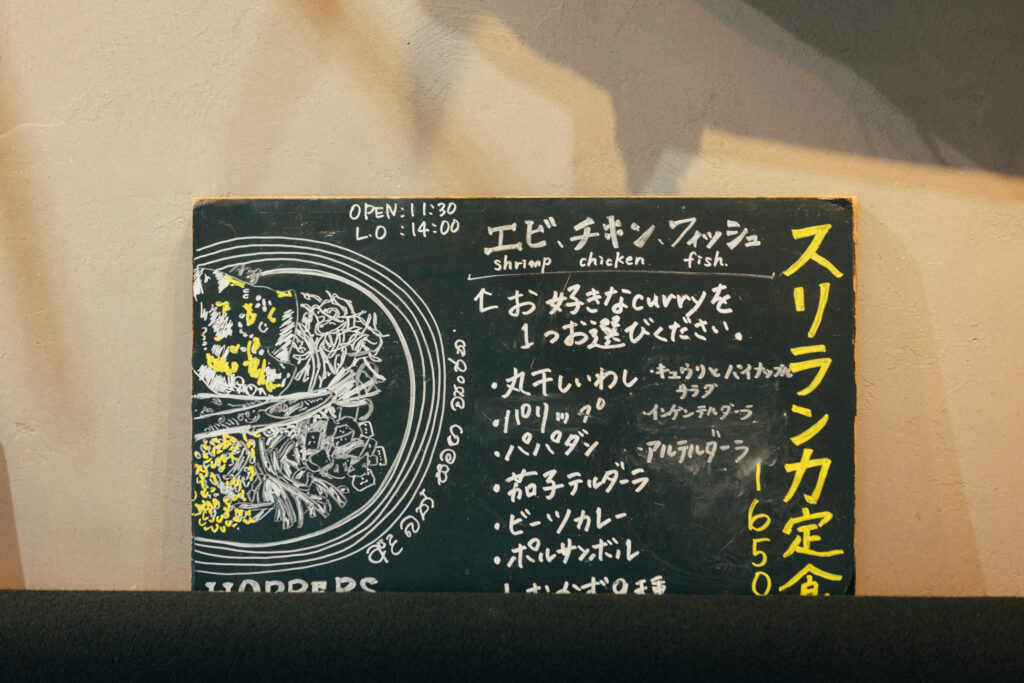 OPEN:11:30
L.O :14:00
エビ、チキン、フィッシュ
shrimp chicken. fish.
↑お好きなcurryを
1つお選びください。
・丸干しいわし
・パリップ
・パパダン
・茄子テルダーラ
・ビーツカレー
・ポルサンボル
・キュウリとパイナップル
サラダ
・インゲンテルダーラ
・アルテルダーラ
スリランカ定食
1650
HOPPERS
おかず9種